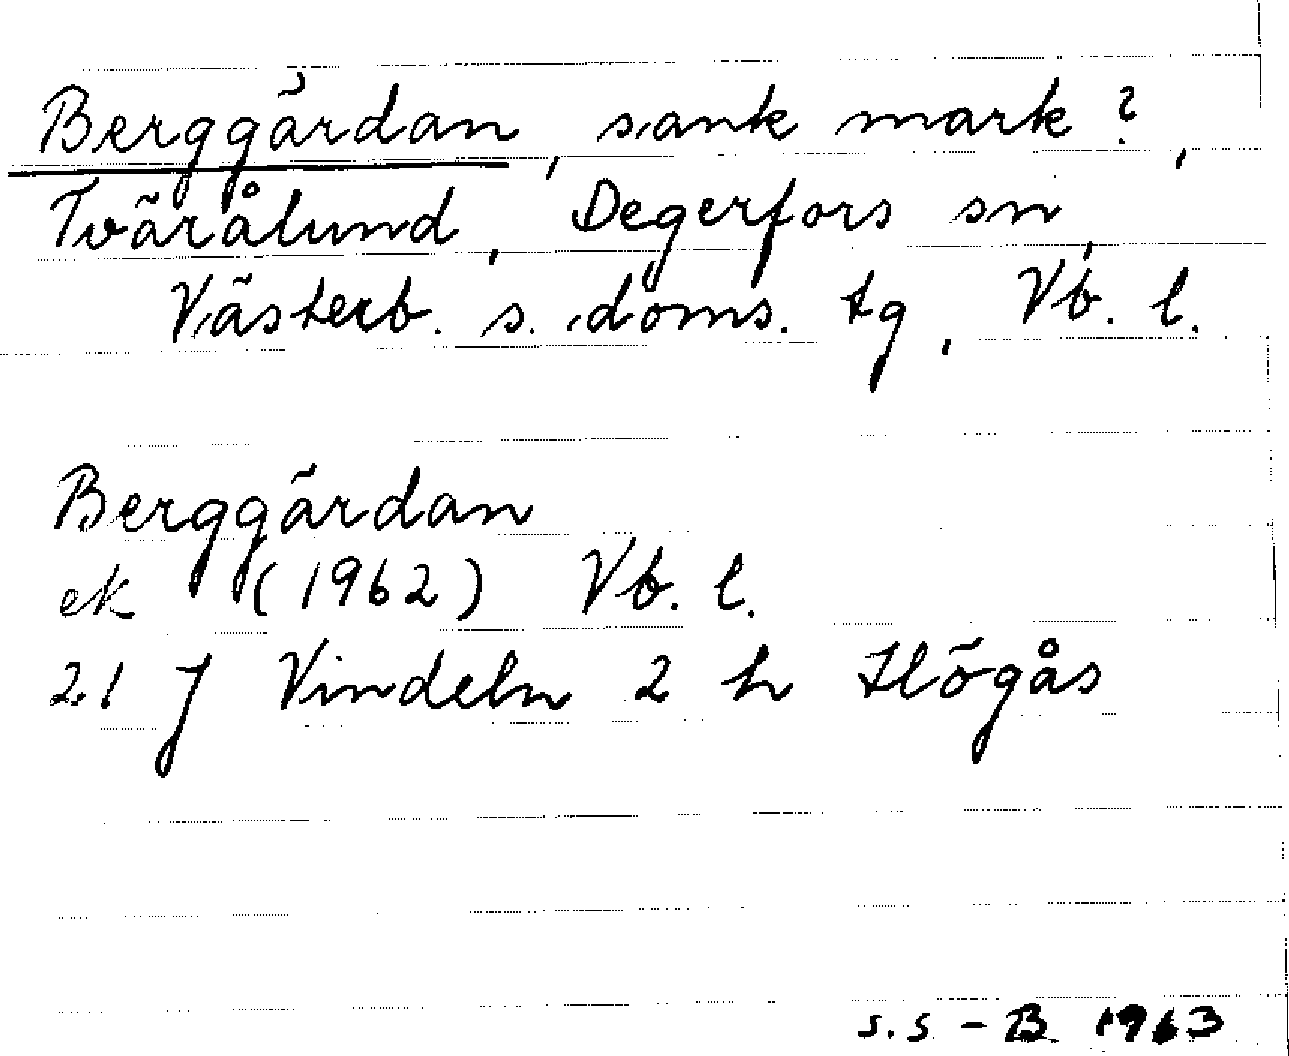 Berggärdan, sank mark?,
Tväрålund, Degerfors sn,
Västerb. s. doms. tg, Vb. l.
Berggärdan
ek (1962) Vb. l.
21 J Vindeln 2 h Högås
S.S - B 1963